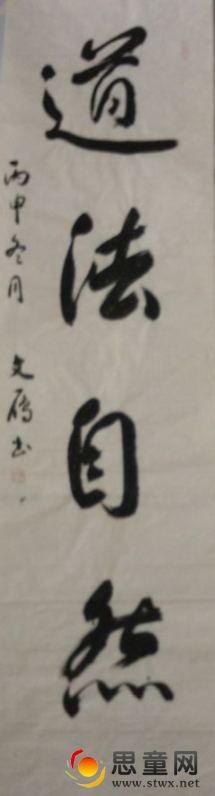 道法自然
丙申冬月 文 书
思童网
www.stwx.net